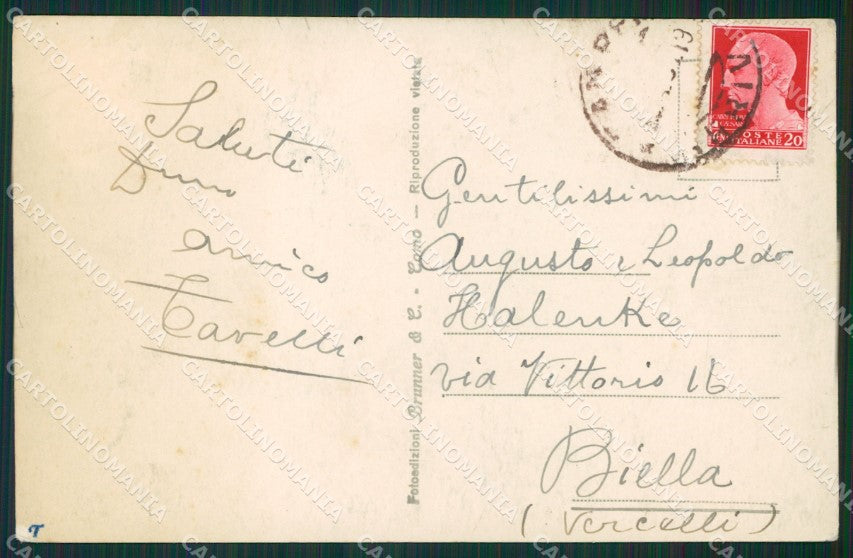 Saluti
amico
Tavelli
Fotoedizioni Brunner & C. - Como — Riproduzione vietata
Gentilissimi
Augusto e Leopoldo
Halenke
via Vittorio 16
Biella
(Vercelli)
POSTE
ITALIANE 20
CARTOLINOMANIA